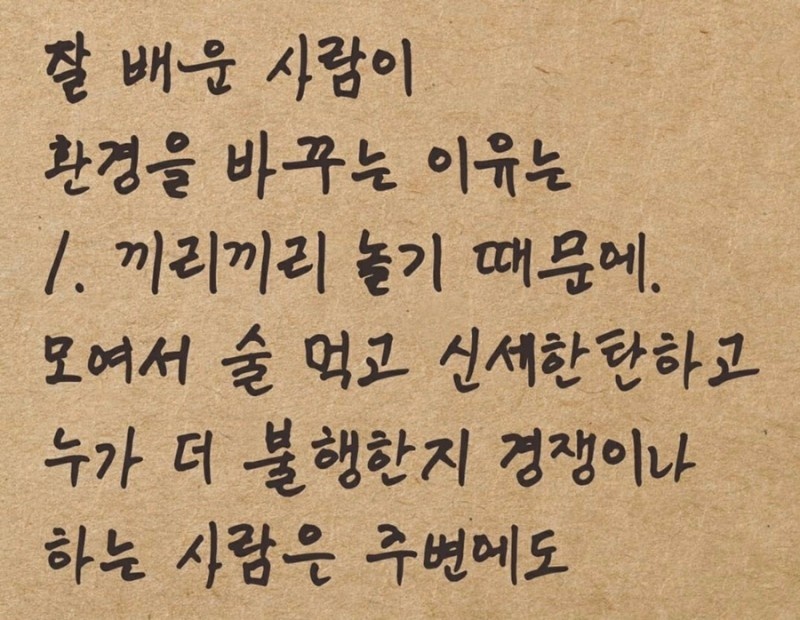 잘 배운 사람이
환경을 바꾸는 이유는
1. 끼리끼리 놀기 때문에.
모여서 술 먹고 신세한탄하고
누가 더 불행한지 경쟁이나
하는 사람은 주변에도